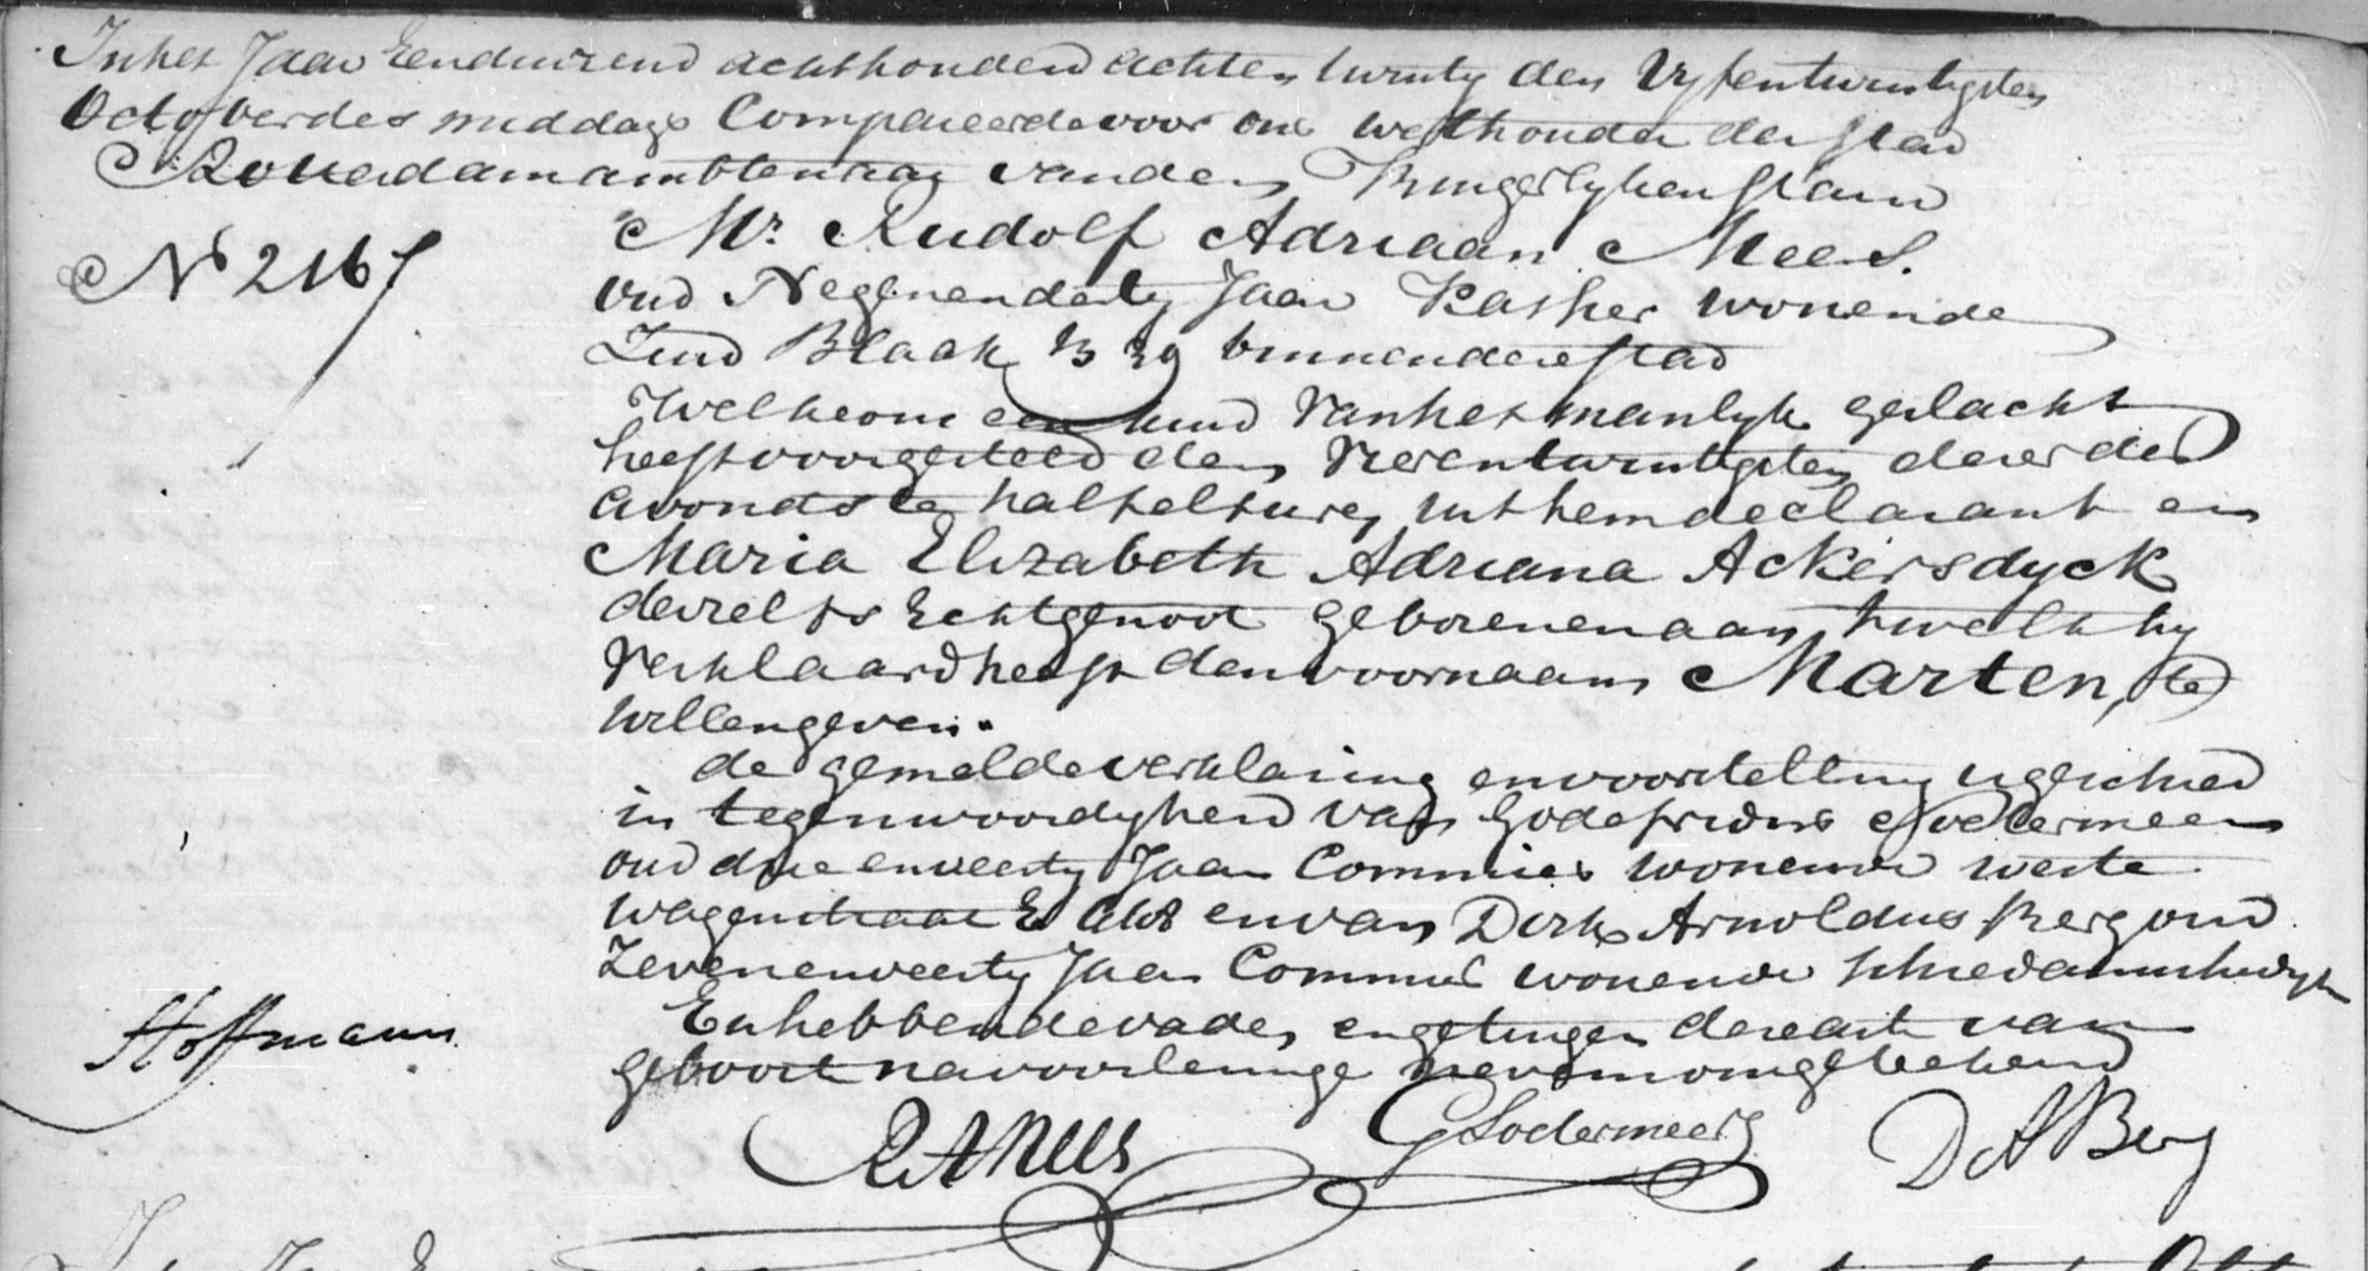 In het Jaar Eenduizend achthonderd achten twintig den Vyfentwintigsten
October des middags Compareerde voor ons wethouder der stad
Rotterdam ambtenaar vanden Burgerlyken stand
Mr. Rudolf Adriaan Mees.
oud Negenendertig Jaar Kassier wonende
Zuid Blaak B 39 binnen deze stad
Welke ons een kind van het manlyk geslacht
heeft voorgesteld den Vierentwintigsten dezer des
avonds te half elf uren uit hem declarant en
Maria Elizabeth Adriana Ackersdyck
deszelfs Echtgenoot geboren en aan twelk hy
Verklaard heeft den voornaam Marten, te
willen geven.
de gemelde verklaring en voorstelling is geschied
in tegenwoordigheid van Godefridus Soetermeer
oud drie en veertig Jaar Commies wonende weste
wagenstraat E en van Dirk Arnoldus Berg oud
Zeven en veertig Jaar Commies wonende schiedamschedyk
En hebben de vader en getuigen deze acte van
geboorte na voorlezinge nevens ons geteekend
No 2167
Hoffmann
RA Mees
G Soetermeer
D A Berg